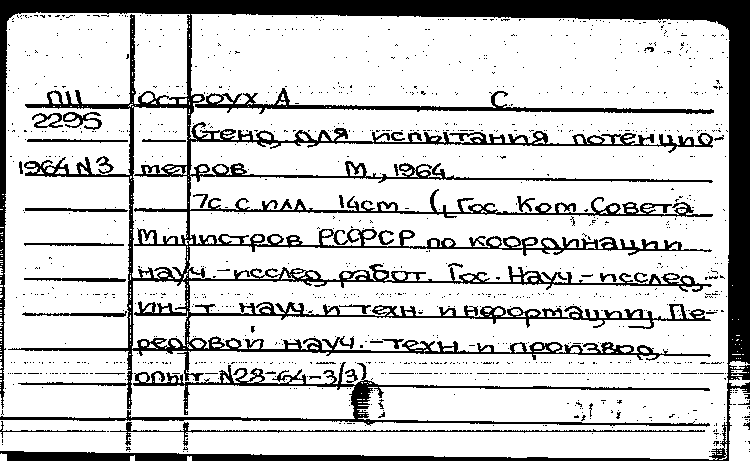 П11 Остроух, А. С.
2295 Стенд для испытания потенцио-
1964 N3 метров. М., 1964.
7с. с илл. 14см. (Гос. Ком. Совета
Министров РСФСР по координации
науч.-исслед. работ. Гос. Науч.-исслед.
ин-т науч. и техн. информации. Пе-
редовой науч.-техн. и производ.
опыт. N23-64-3/3)